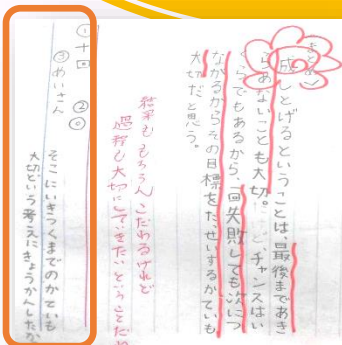 (まとめ)
成しとげるということは、最後まであき
らめないことも大切。とチャンスはい
くらでもあるから、一回失敗しても次につ
ながるからその目標をたっせいするかていも
大切だと思う。
結果も もちろん こだわるけれど
過程も大切にしていきたいということだね
①十回 ②◎
③めいさん
そこにいきつくまでのかていも
大切という考えにきょうかんしたな